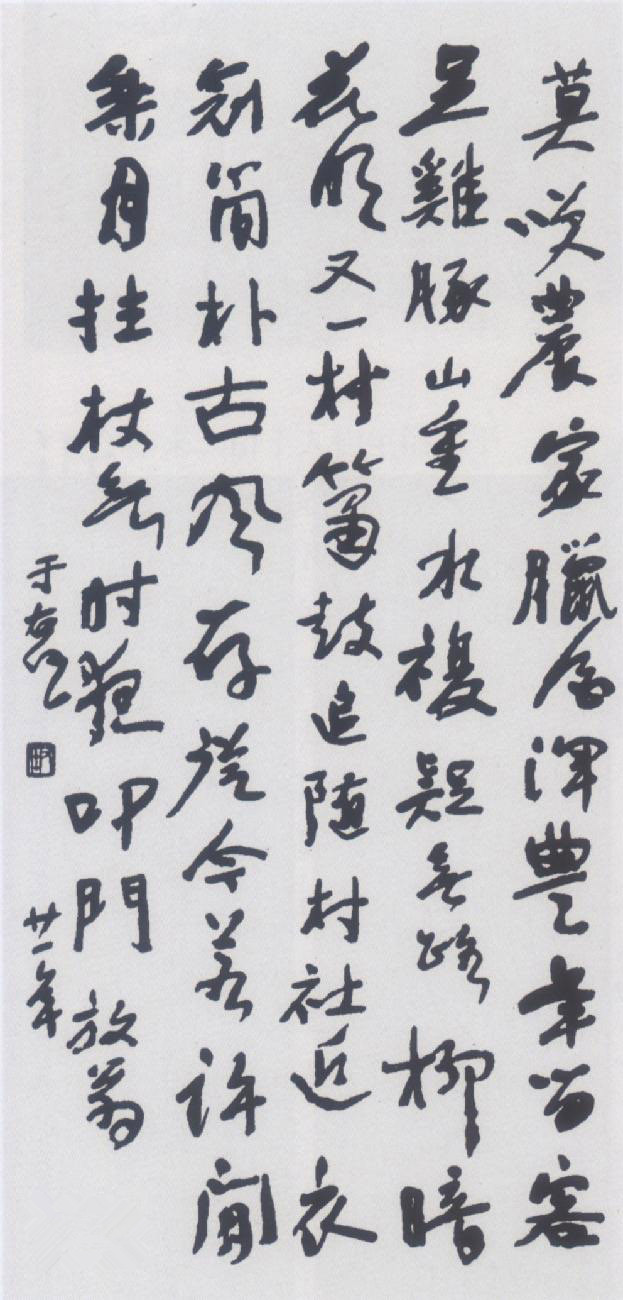 莫咲農家臘酒渾豐年留客
足雞豚山重水複疑無路柳暗
花明又一村簫鼓追隨村社近衣
冠簡朴古風存從今若許閒
乘月拄杖無時夜叩門放翁
于右任 廿一年